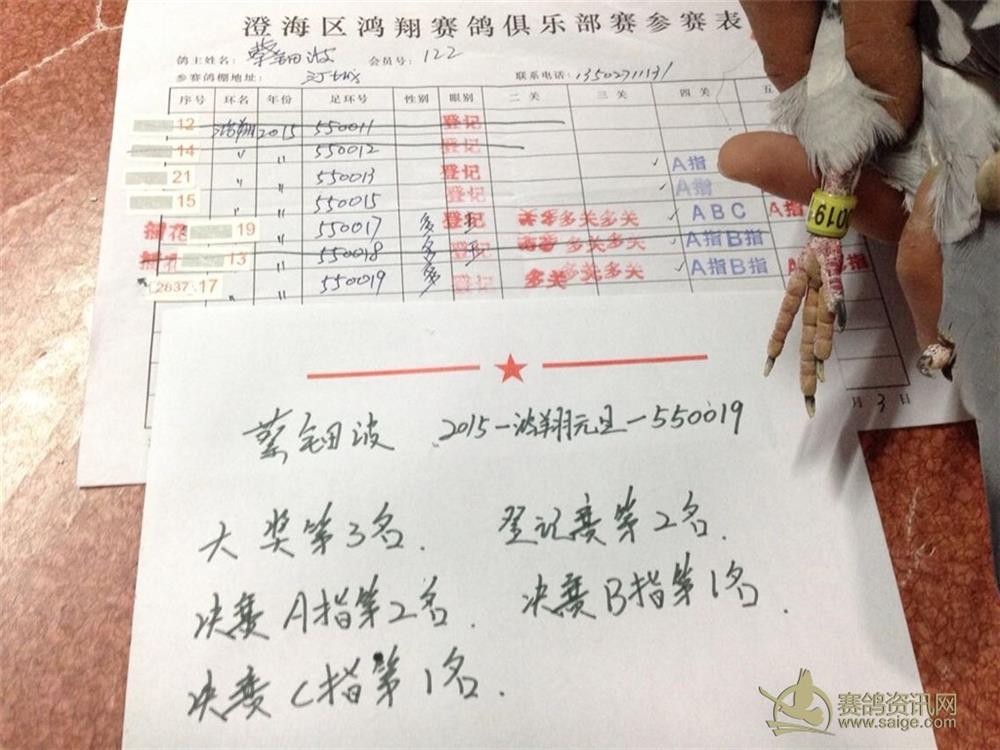 澄海区鸿翔赛鸽俱乐部赛参赛表
鸽主姓名: 蔡钿波 会员号: 122
参赛鸽棚地址: 联系电话: 13502711131
序号 环名 年份 足环号 性别 眼别 二关 三关 四关 五
12 鸿翔 2015 550011 登记
14 〃 〃 550012 登记
21 〃 〃 550013 登记 ✓ A指
15 〃 550015 登记 ✓ A指
19 〃 550017 登记 多关多关 ✓ ABC A指
13 〃 550018 多关多关 A指B指
2837 17 〃 〃 550019 登记 多关多关多关 ✓ A指B指
019
月 3 日
蔡钿波 2015-鸿翔元旦-550019
大奖第3名. 登记赛第2名.
决赛A指第2名. 决赛B指第1名.
决赛C指第1名.
赛鸽资讯网
www.saige.com